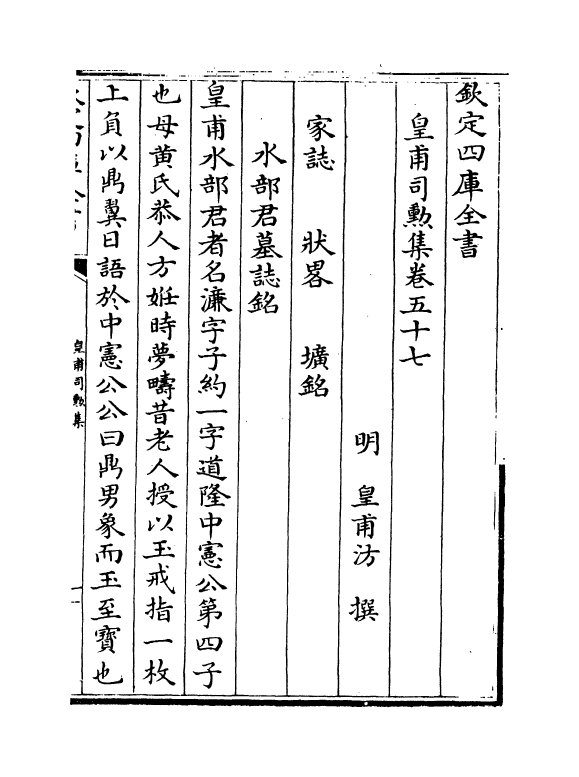 欽定四庫全書
皇甫司勲集卷五十七
明 皇甫汸 撰
家誌 狀畧 壙銘
水部君墓誌銘
皇甫水部君者名濂字子約一字道隆中憲公第四子
也母黄氏恭人方姙時夢疇昔老人授以玉戒指一枚
上負以鼎翼日語於中憲公公曰鼎男象而玉至寳也
皇甫司勲集